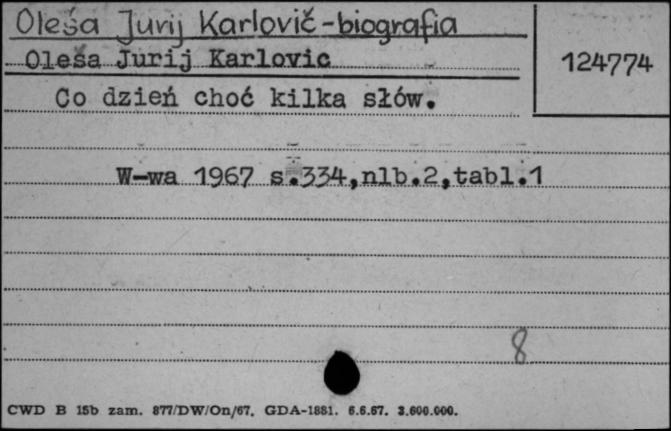 Oleśa Jurij Karlovič-biografia
Oleśa Jurij Karlovic
124774
Co dzień choć kilka słów.
W-wa 1967 s.334,nlb.2,tabl.1
8
CWD B 15b zam. 877/DW/On/67. GDA-1881. 6.6.67. 3.600.000.